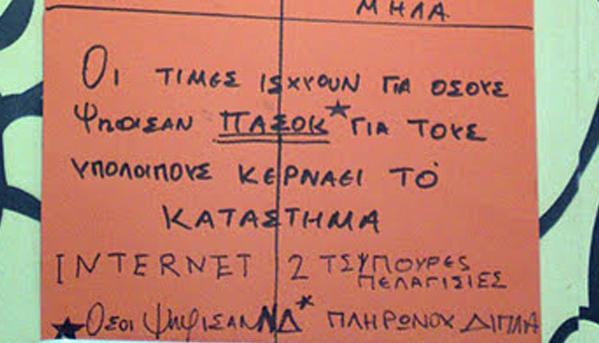 ΜΗΛΑ
Οι ΤΙΜΕΣ ΙΣΧΥΟΥΝ ΓΙΑ ΟΣΟΥΣ
Ψηφισαν ΠΑΣΟΚ★ ΓΙΑ ΤΟΥΣ
ΥΠΟΛΟΙΠΟΥΣ ΚΕΡΝΑΕΙ ΤΟ
ΚΑΤΑΣΤΗΜΑ
INTERNET 2 ΤΣΥΠΟΥΡΕΣ
ΠΕΛΑΓΙΣΙΕΣ
★ Οσοι Ψηφισαν ΝΔ* ΠΛΗΡΩΝΟΥ ΔΙΠΛΑ